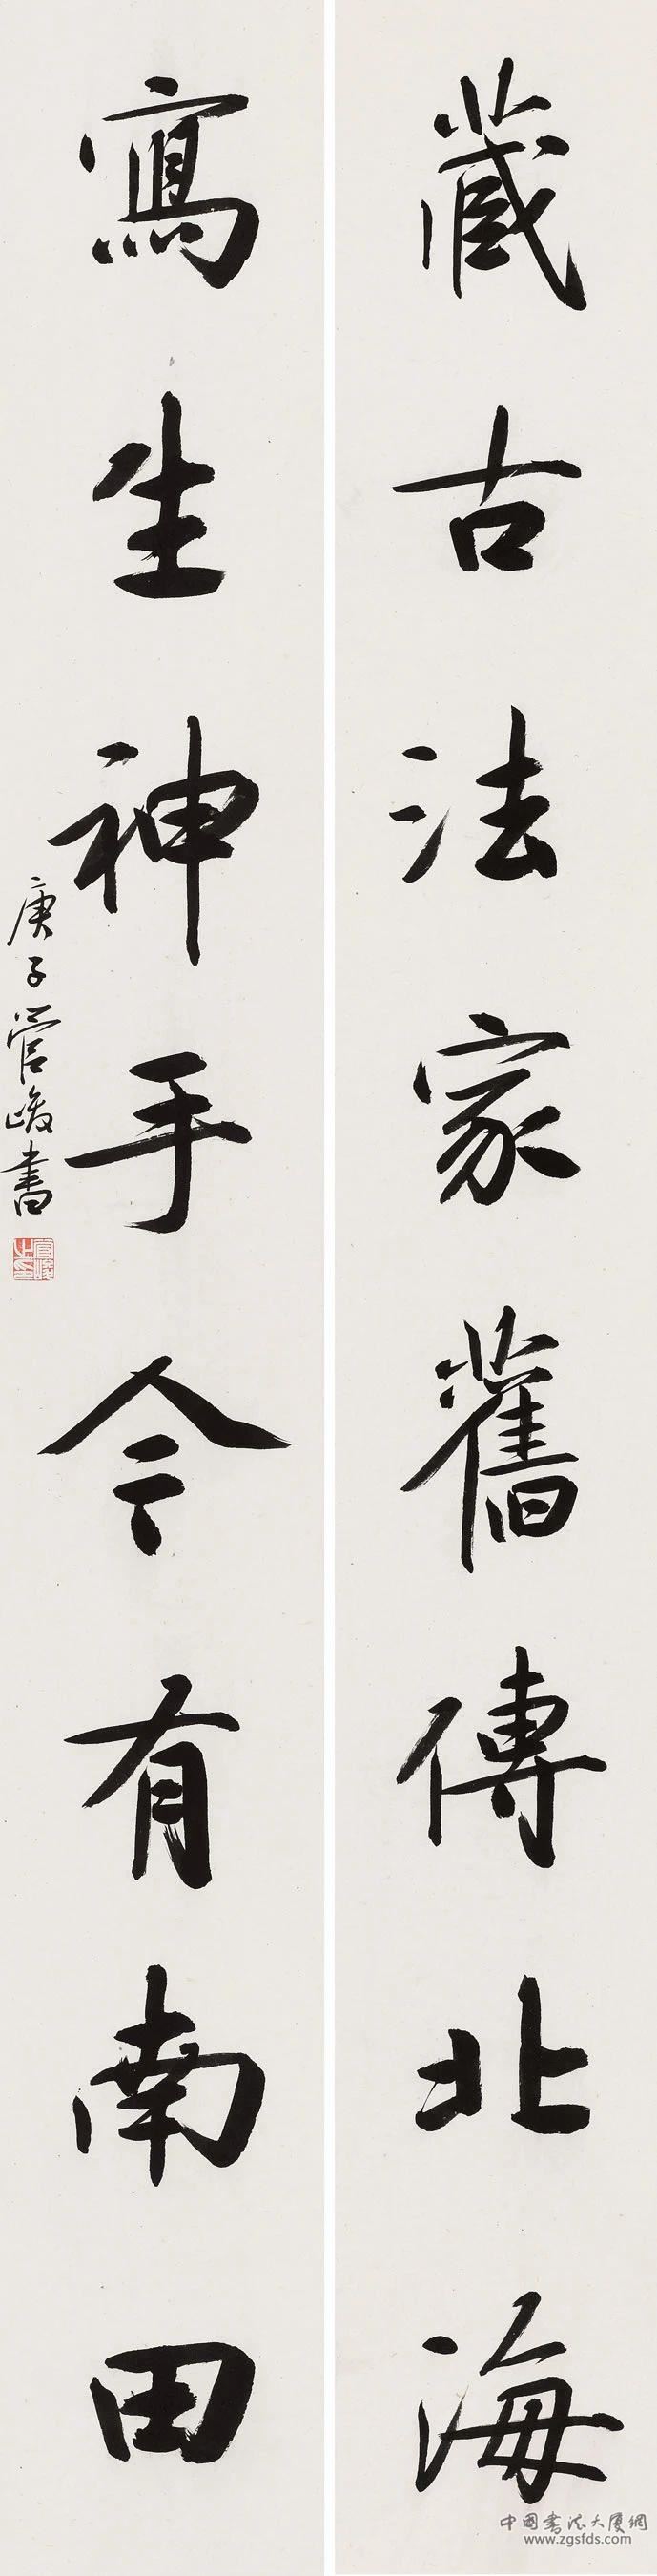 藏古法家舊傳北海
寫生神手今有南田
庚子管峻書
管峻之印
中国书法大厦網
www.zgsfds.com